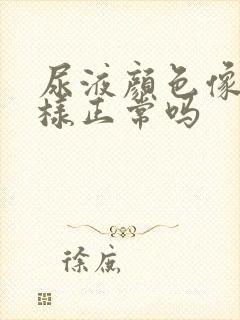 尿液颜色像
样正常吗
徐庶